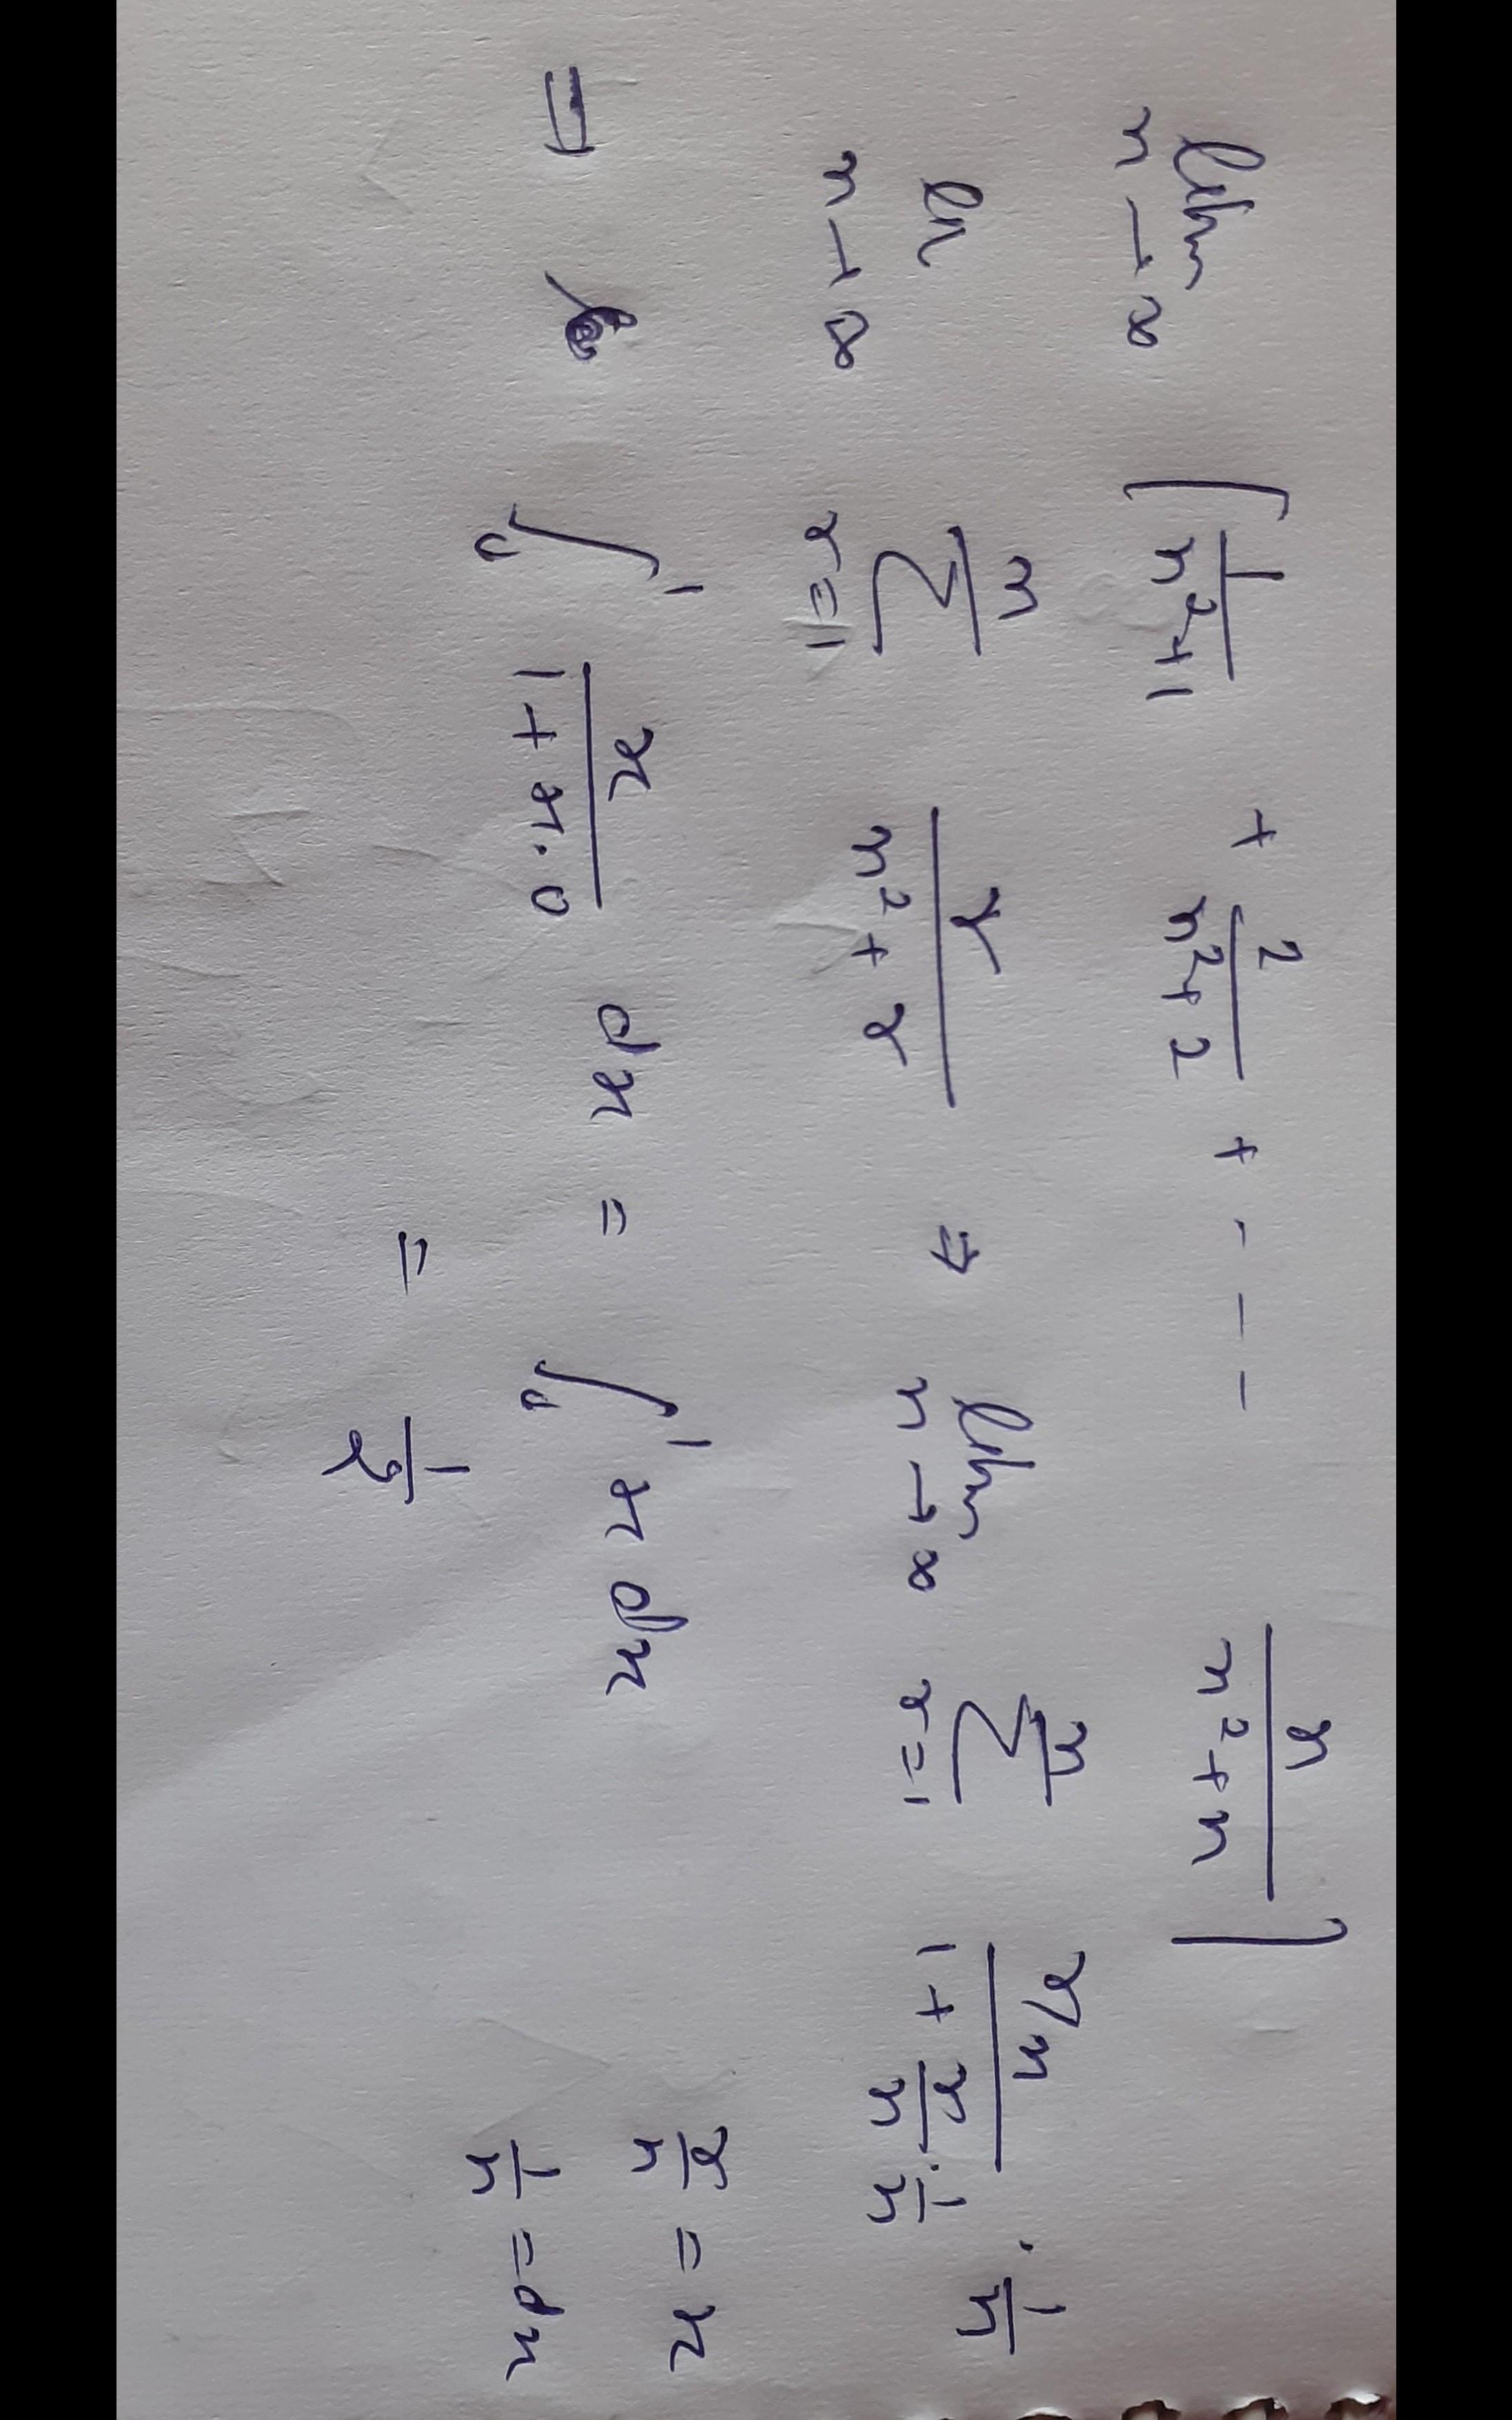 lim n→∞ [ 1/(n²+1) + 2/(n²+2) + - - - n/(n²+n) ]
ln n→∞ Σ_{r=1}^{n} r/(n²+r) ⇒ lim n→∞ Σ_{r=1}^{n} (r/n)/(1 + r/n · 1/n) · 1/n
⇒ ∫₀¹ x/(1+x·0) dx = ∫₀¹ x dx
r/n = x
1/n = dx
= 1/2